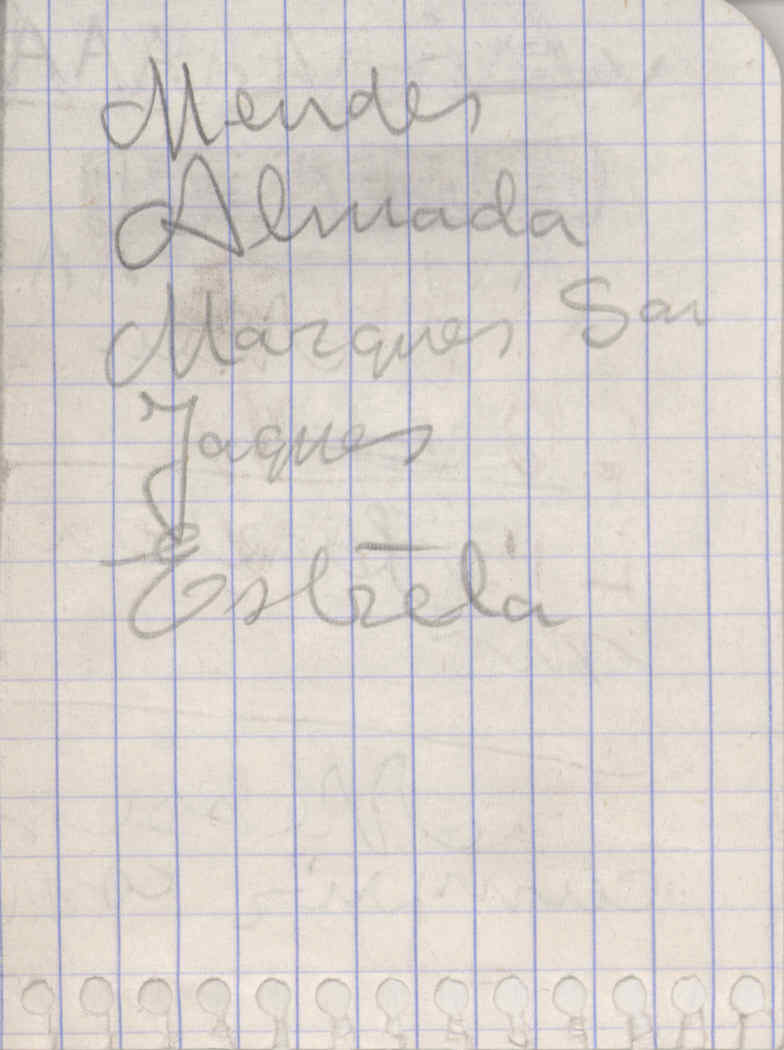 Mendes
Almada
Marques Sar
Jaques
Estrela